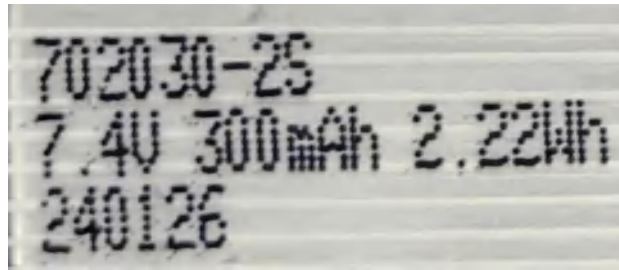 702030-2S
7.4V 300mAh 2.22Wh
240126